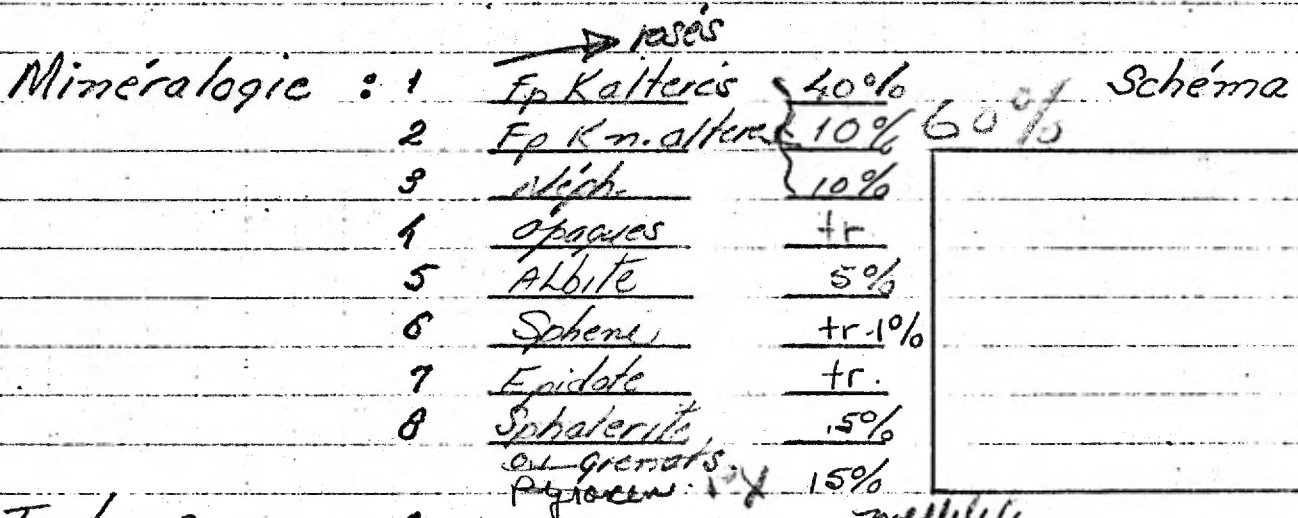 rosés
Minéralogie : 1 Fp K altérés 40% Schéma
2 Fp K n. altéré 10% 60%
3 Néph. 10%
4 opaques tr.
5 Albite 5%
6 Sphene tr-1%
7 Epidote tr.
8 Sphalerite .5%
ou grenats.
Pyroxene. 15%